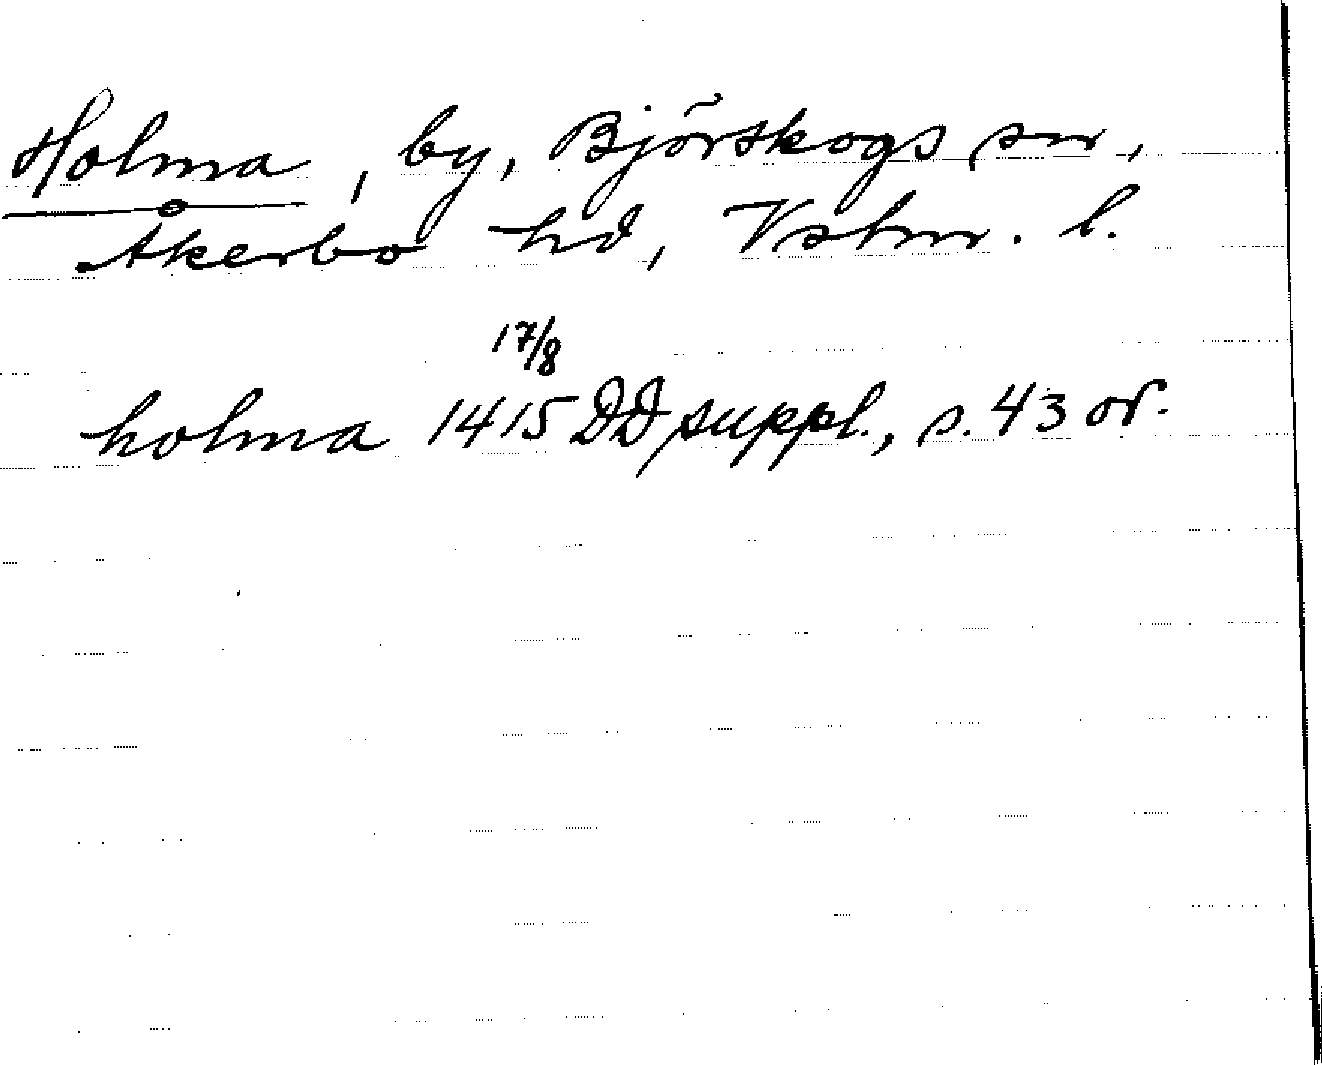 Holma, by, Björskogs sn,
Åkerbo hd, Vstm. l.
17/8
holma 1415 DD suppl., s. 43 or.